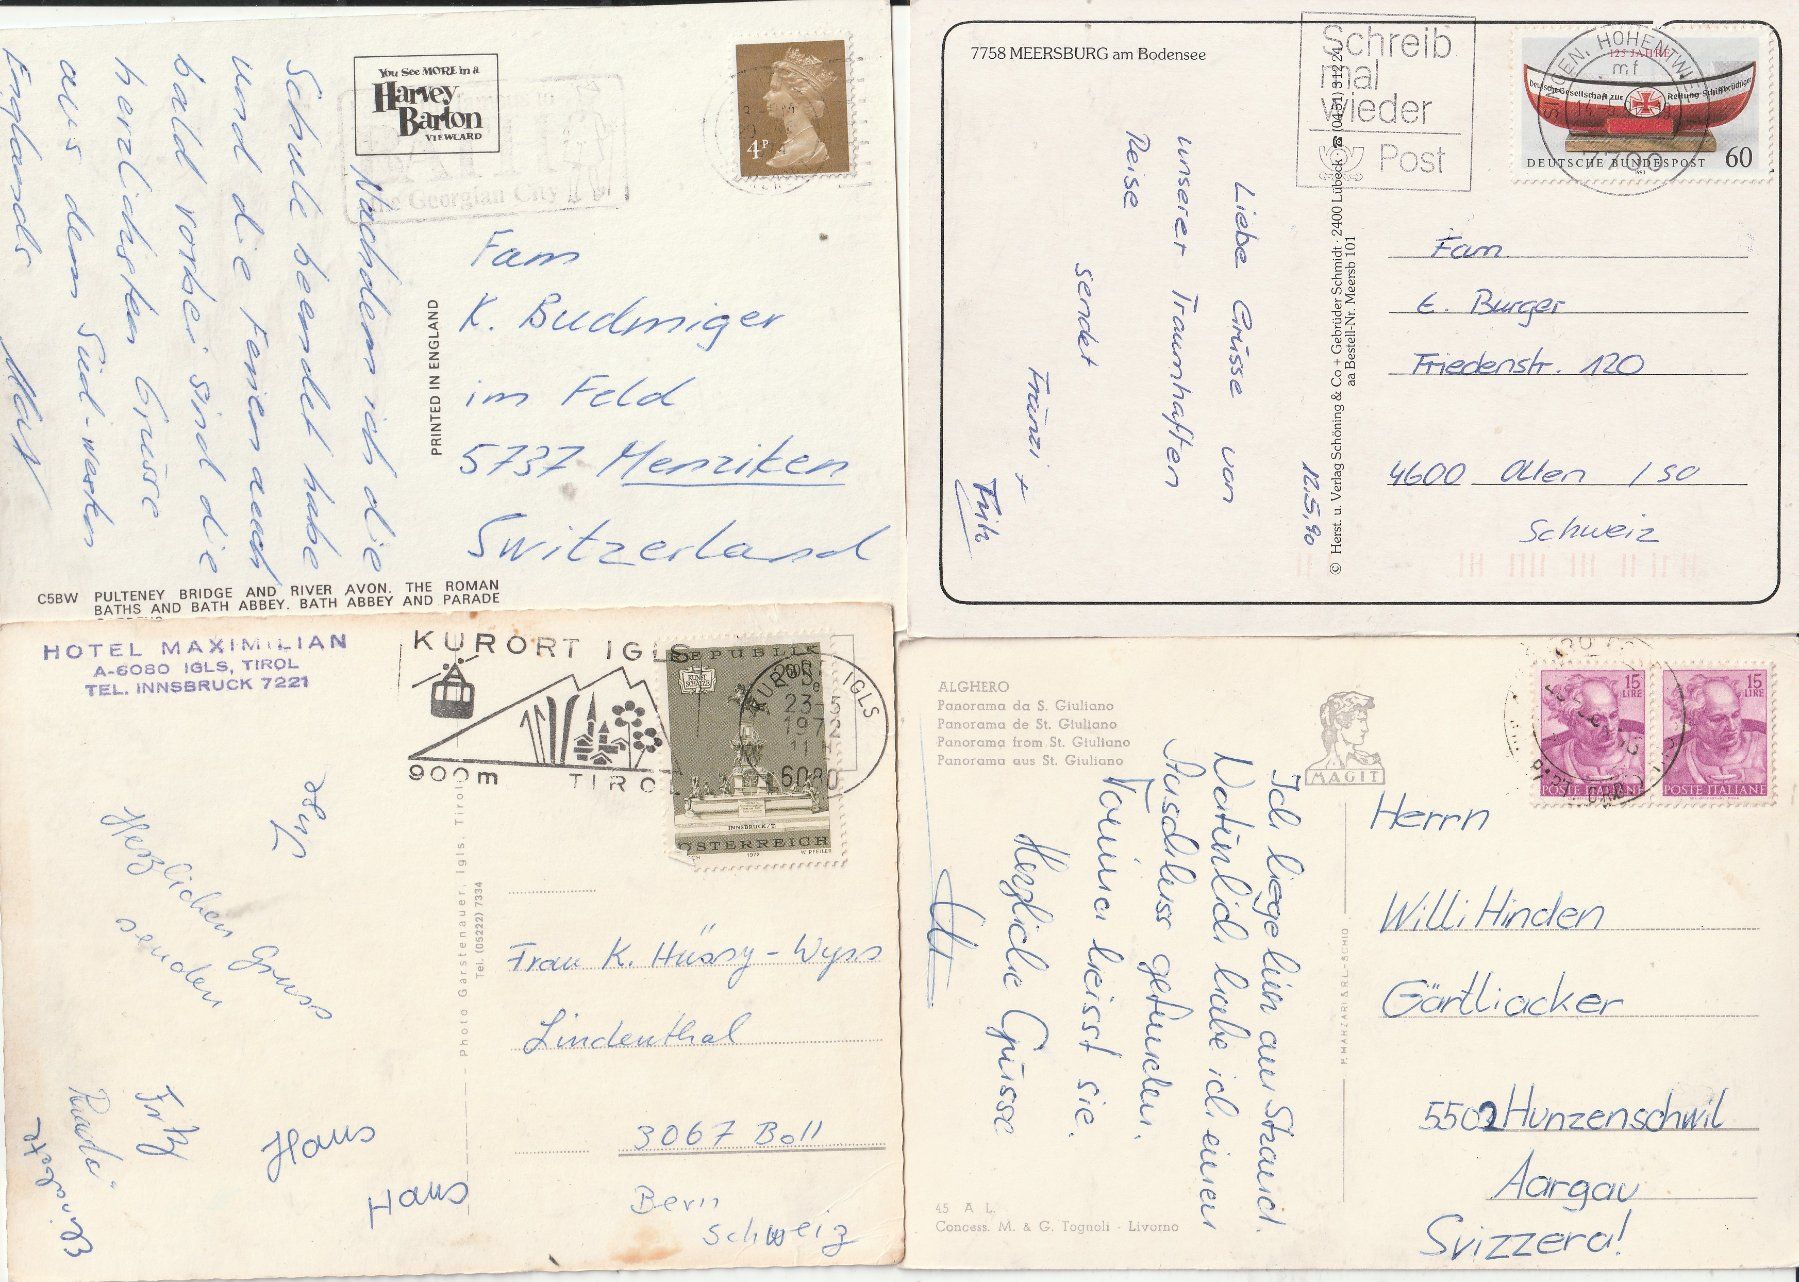 You See MORE in a
Harvey
Barton
VIEWCARD
The Georgian City
4P
Nachdem ich die
Schule beendet habe
und die Ferien auch
bald vorbei sind die
herzlichsten Grüsse
aus dem Süd-westen
Englands
PRINTED IN ENGLAND
Fam
K. Budmiger
im Feld
5737 Menziken
Switzerland
C5BW PULTENEY BRIDGE AND RIVER AVON. THE ROMAN
BATHS AND BATH ABBEY. BATH ABBEY AND PARADE
7758 MEERSBURG am Bodensee
Schreib
mal
wieder
Post
SINGEN, HOHENTWIEL
mf
7700
125 JAHRE
Deutsche Gesellschaft zur Rettung Schiffbrüchiger
DEUTSCHE BUNDESPOST 60
12.5.90
Liebe Grüsse von
unserer Traumhaften
Reise
sendet
Fränzi +
© Herst. u. Verlag Schöning & Co + Gebrüder Schmidt · 2400 Lübeck · ☎ (0451) 31221
aa Bestell-Nr. Meersb 101
Fam.
E. Burger
Friedenstr. 120
4600 Olten / SO
Schweiz
HOTEL MAXIMILIAN
A-6080 IGLS, TIROL
TEL. INNSBRUCK 7221
KURORT IGLS
900m TIROL
KURORT IGLS
23-5
1972
6080
REPUBLIK
INNSBRUCK/T
ÖSTERREICH
1972
Herzlichen Gruss
senden
Fritz
Haus
Haus
Photo Garstenauer, Igls Tirol
Tel. (05222) 7334
Frau K. Hüssy-Wyss
Lindenthal
3067 Boll
Bern
Schweiz
ALGHERO
Panorama da S. Giuliano
Panorama de St. Giuliano
Panorama from St. Giuliano
Panorama aus St. Giuliano
MAGIT
15 LIRE
POSTE ITALIANE
15 LIRE
POSTE ITALIANE
Ich liege hin am Strand.
Natürlich habe ich einen
Anschluss gefunden.
Herzliche Grüsse
Herrn
Willi Hinden
Gärtliacker
5502 Hunzenschwil
Aargau
Svizzera!
45 A L.
Concess. M. & G. Tognoli - Livorno